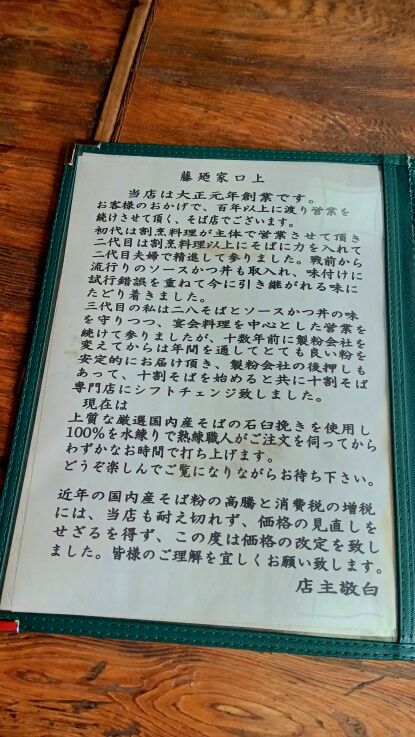 藤廼家口上
当店は大正元年創業です。
お客様のおかげで、百年以上に渡り営業を
続けさせて頂く、そば店でございます。
初代は割烹料理が主体で営業させて頂き
二代目は割烹料理以上にそばに力を入れて
二代目夫婦で精進して参りました。戦前から
流行りのソースかつ丼も取入れ、味付けに
試行錯誤を重ねて今に引き継がれる味に
たどり着きました。
三代目の私は二八そばとソースかつ丼の味
を守りつつ、宴会料理を中心とした営業を
続けて参りましたが、十数年前に製粉会社を
変えてからは年間を通してとても良い粉を
安定的にお届け頂き、製粉会社の後押しも
あって、十割そばを始めると共に十割そば
専門店にシフトチェンジ致しました。
現在は
上質な厳選国内産そばの石臼挽きを使用し
100%を水練りで熟練職人がご注文を伺ってから
わずかなお時間で打ち上げます。
どうぞ楽しんでご覧になりながらお待ち下さい。
近年の国内産そば粉の高騰と消費税の増税
には、当店も耐え切れず、価格の見直しを
せざるを得ず、この度は価格の改定を致し
ました。皆様のご理解を宜しくお願い致します。
店主敬白